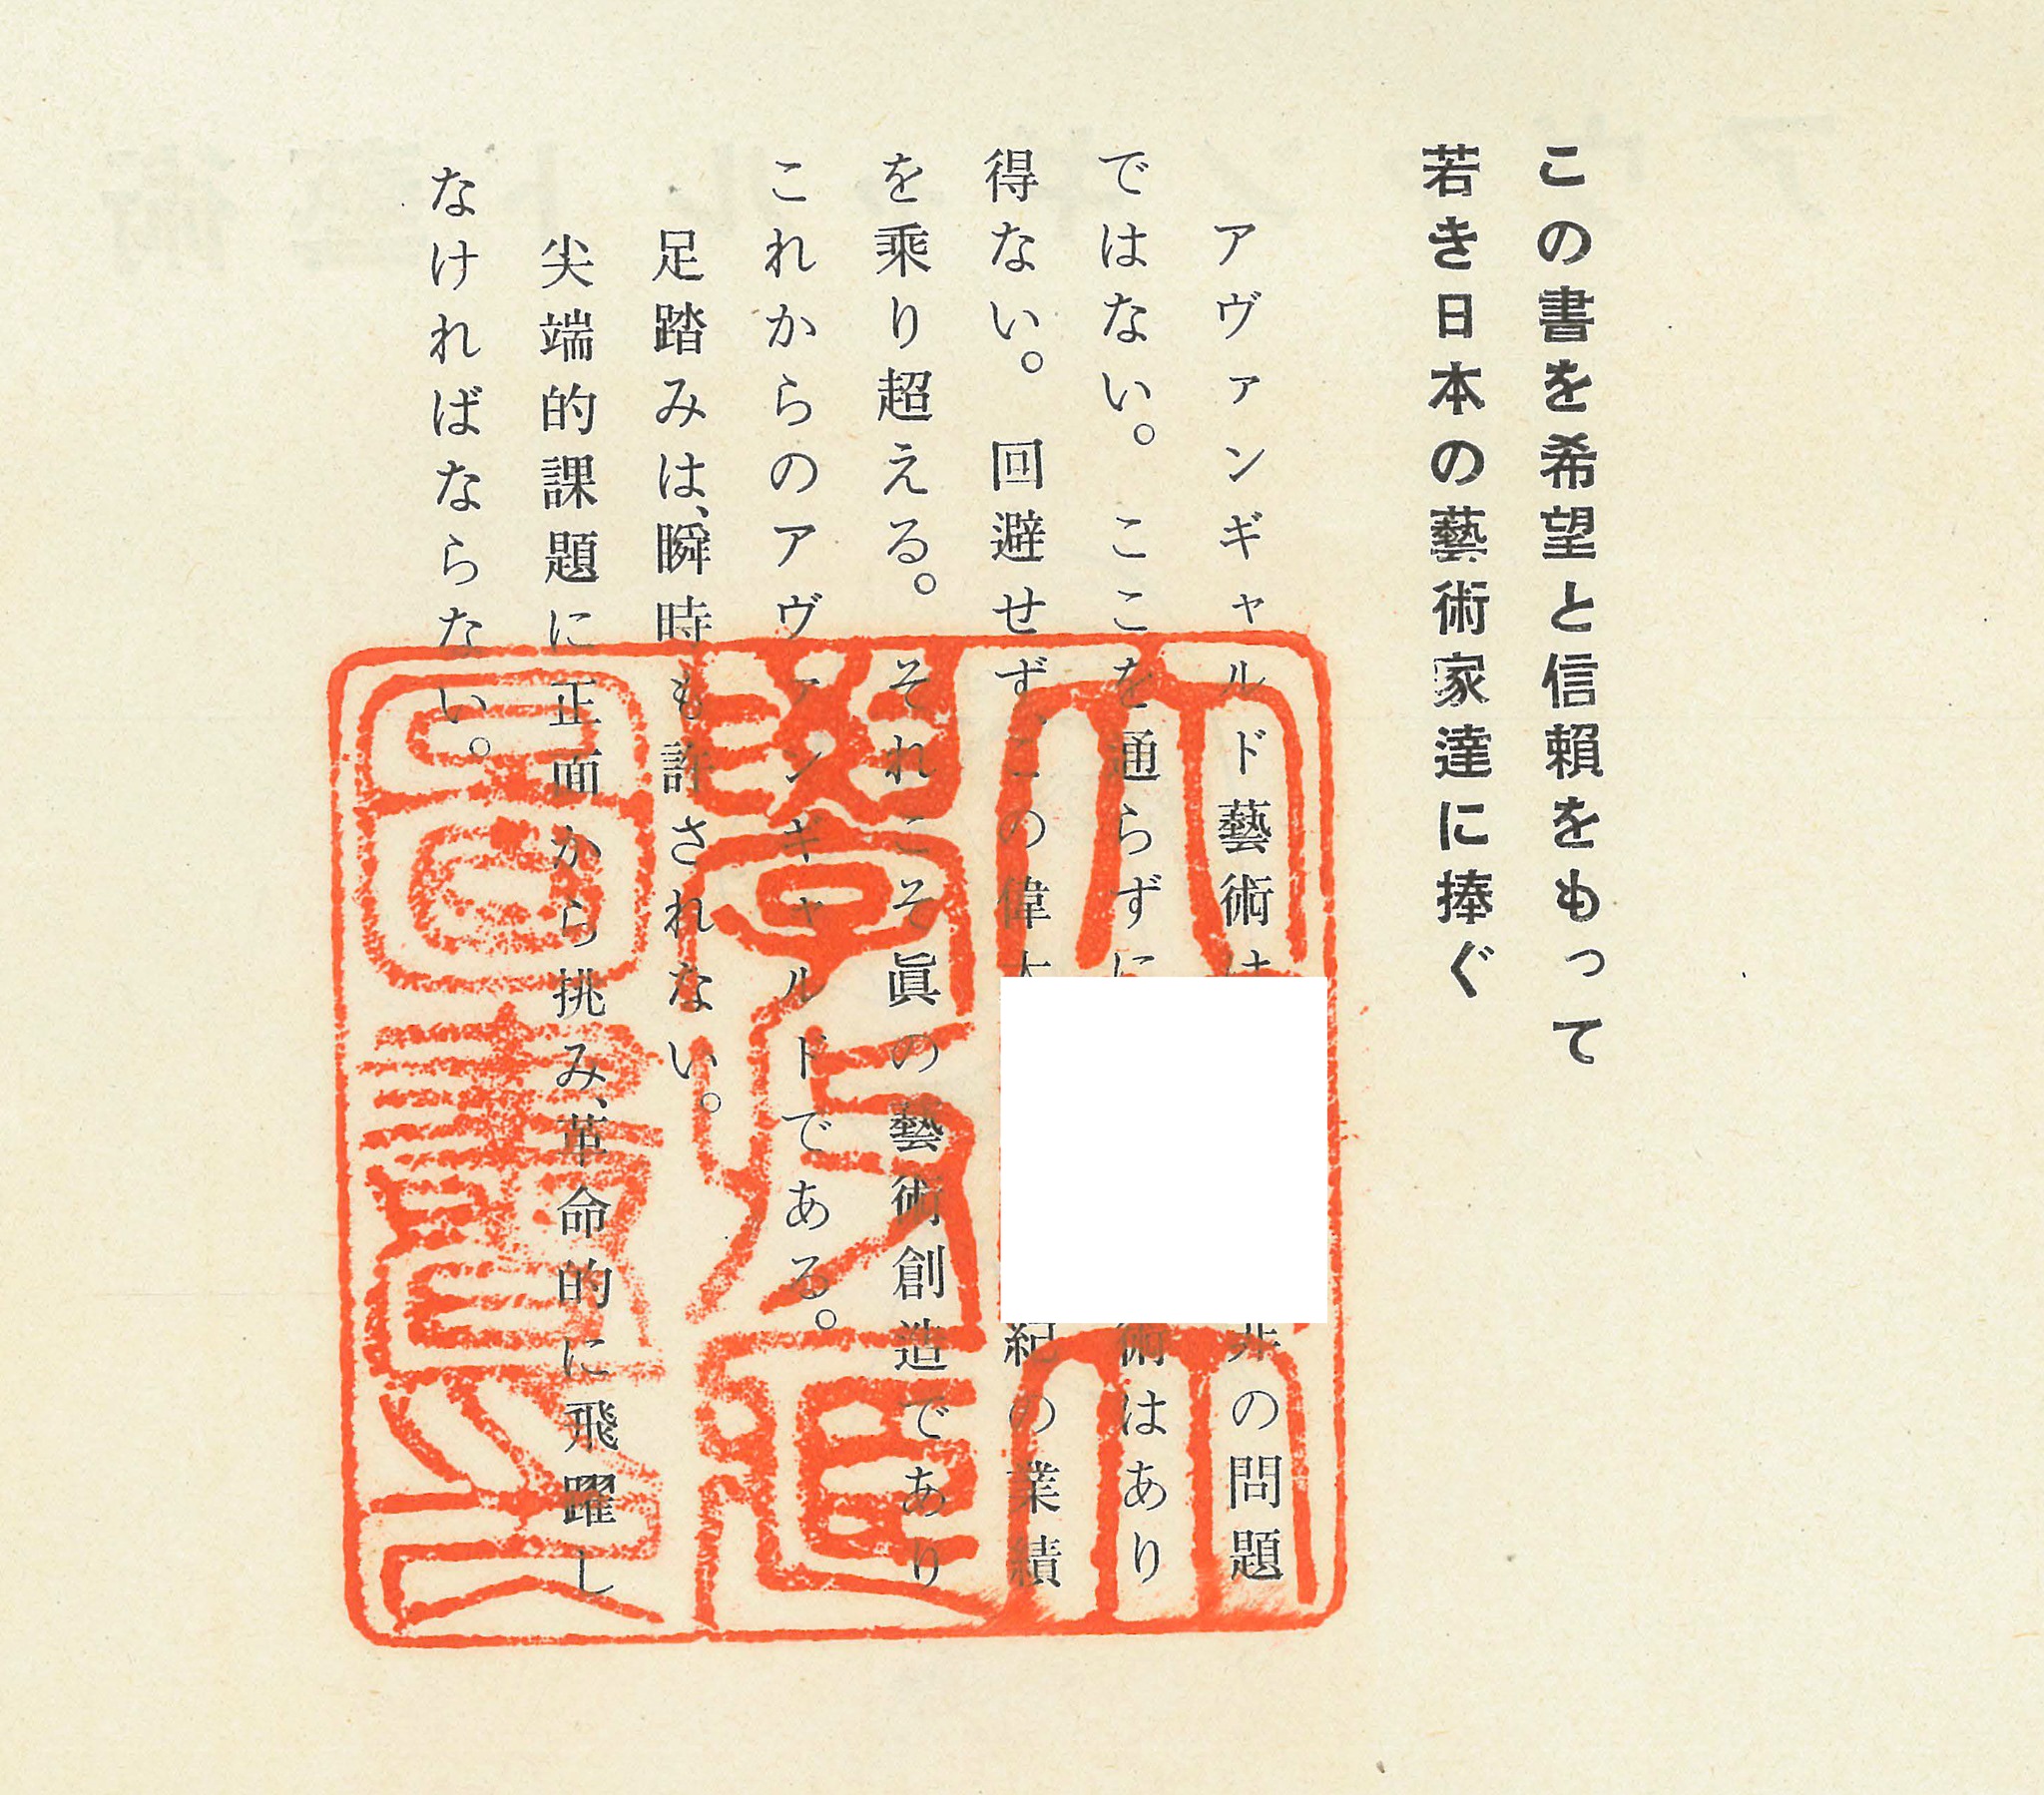 この書を希望と信頼をもって
若き日本の藝術家達に捧ぐ
アヴァンギャルド藝術は の問題
ではない。ここを通らずに 術はあり
得ない。回避せず、この偉 紀の業績
を乗り超える。それこそ眞の藝術創造であり
これからのアヴァンギャルドである。
足踏みは、瞬時も許されない。
尖端的課題に正面から挑み、革命的に飛躍し
なければならない。